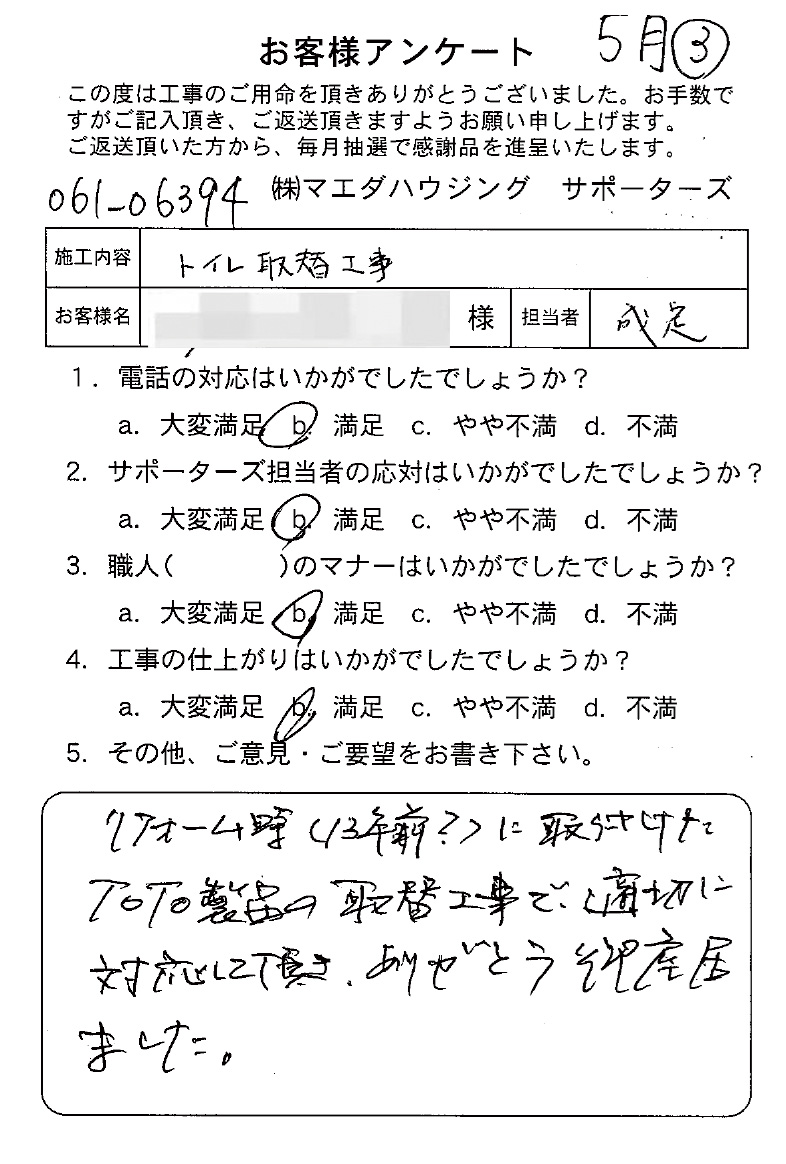 お客様アンケート 5月③
この度は工事のご用命を頂きありがとうございました。お手数で
すがご記入頂き、ご返送頂きますようお願い申し上げます。
ご返送頂いた方から、毎月抽選で感謝品を進呈いたします。
061-06394 ㈱マエダハウジング サポーターズ
施工内容 トイレ取替工事
お客様名 様 担当者 成定
1. 電話の対応はいかがでしたでしょうか?
a. 大変満足 b. 満足 c. やや不満 d. 不満
2. サポーターズ担当者の応対はいかがでしたでしょうか?
a. 大変満足 b. 満足 c. やや不満 d. 不満
3. 職人( )のマナーはいかがでしたでしょうか?
a. 大変満足 b. 満足 c. やや不満 d. 不満
4. 工事の仕上がりはいかがでしたでしょうか?
a. 大変満足 b. 満足 c. やや不満 d. 不満
5. その他、ご意見・ご要望をお書き下さい。
リフォーム時(13年前?)に取り付けた
TOTO製品の取替工事で、適切に
対応して頂き、ありがとう
ました。